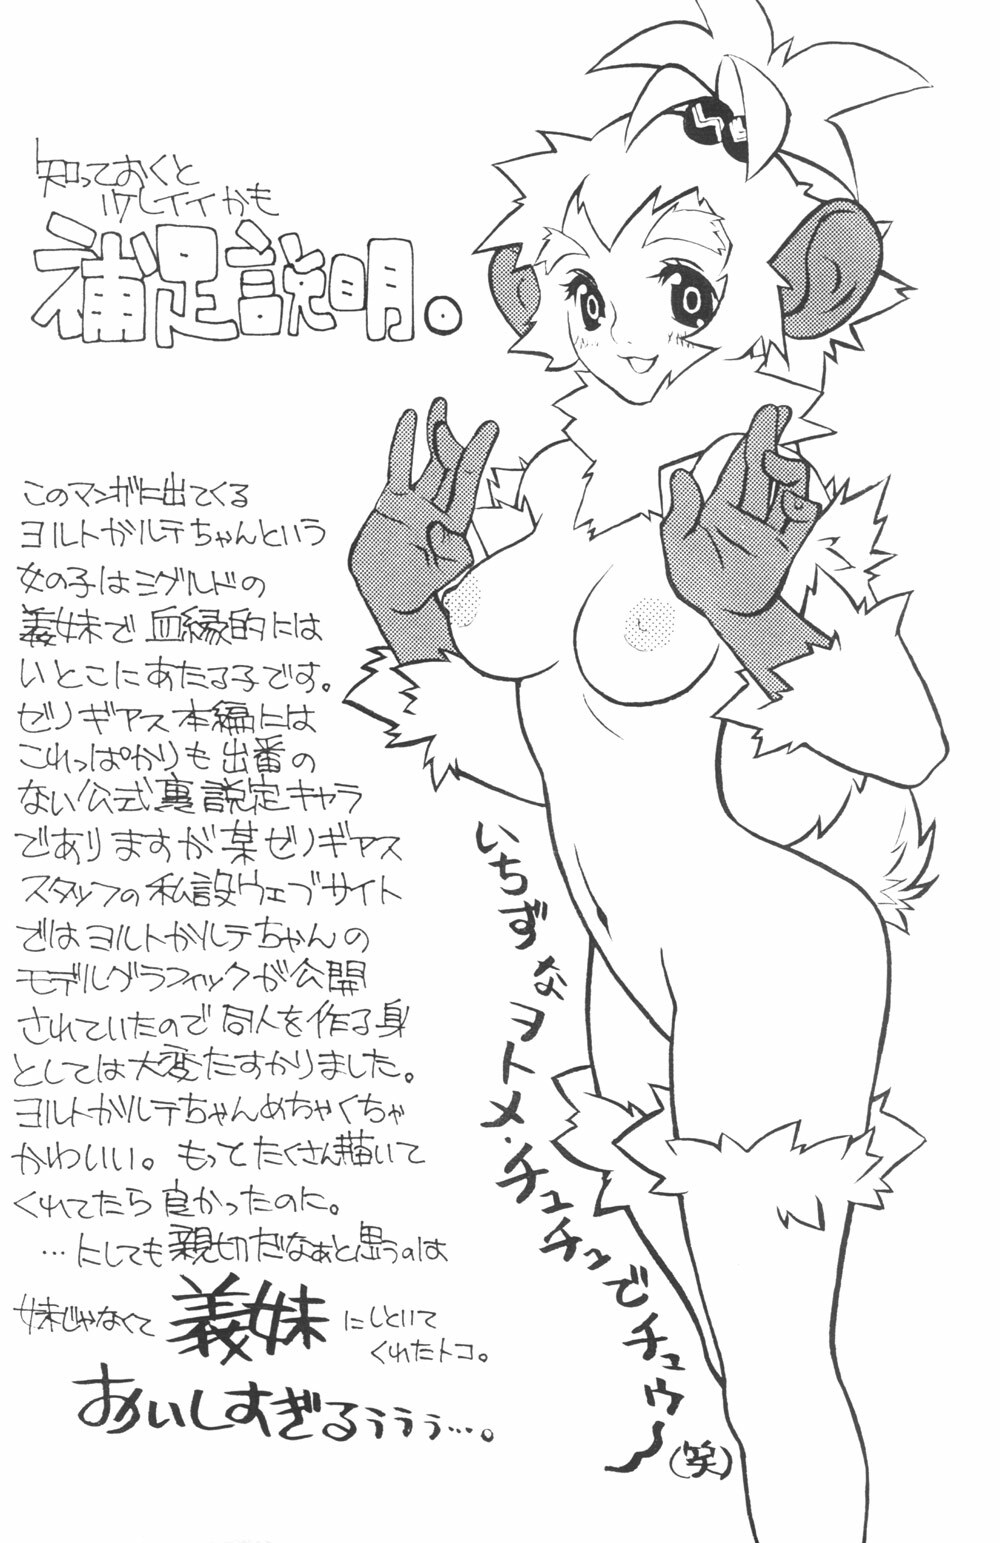 知っておくと
ウレイイかも
補足説明。
このマンガに出てくる
ヨルトガルテちゃんという
女の子はミグルドの
義妹で血縁的には
いとこにあたる子です。
ゼノギアス本編には
これっぱかりも出番の
ない公式裏設定キャラ
でありますが某ゼノギアス
スタッフの私設ウェブサイト
ではヨルトガルテちゃんの
モデルグラフィックが公開
されていたので同人を作る身
としては大変たすかりました。
ヨルトガルテちゃんめちゃくちゃ
かわいい。もっとたくさん描いて
くれてたら良かったのに。
…にしても親切だなぁと思うのは
妹じゃなくて義妹にしといて
くれたトコ。
おいしすぎるぅぅぅ…。
いちずなヲトメ・チュチュンでチュウ〜(笑)